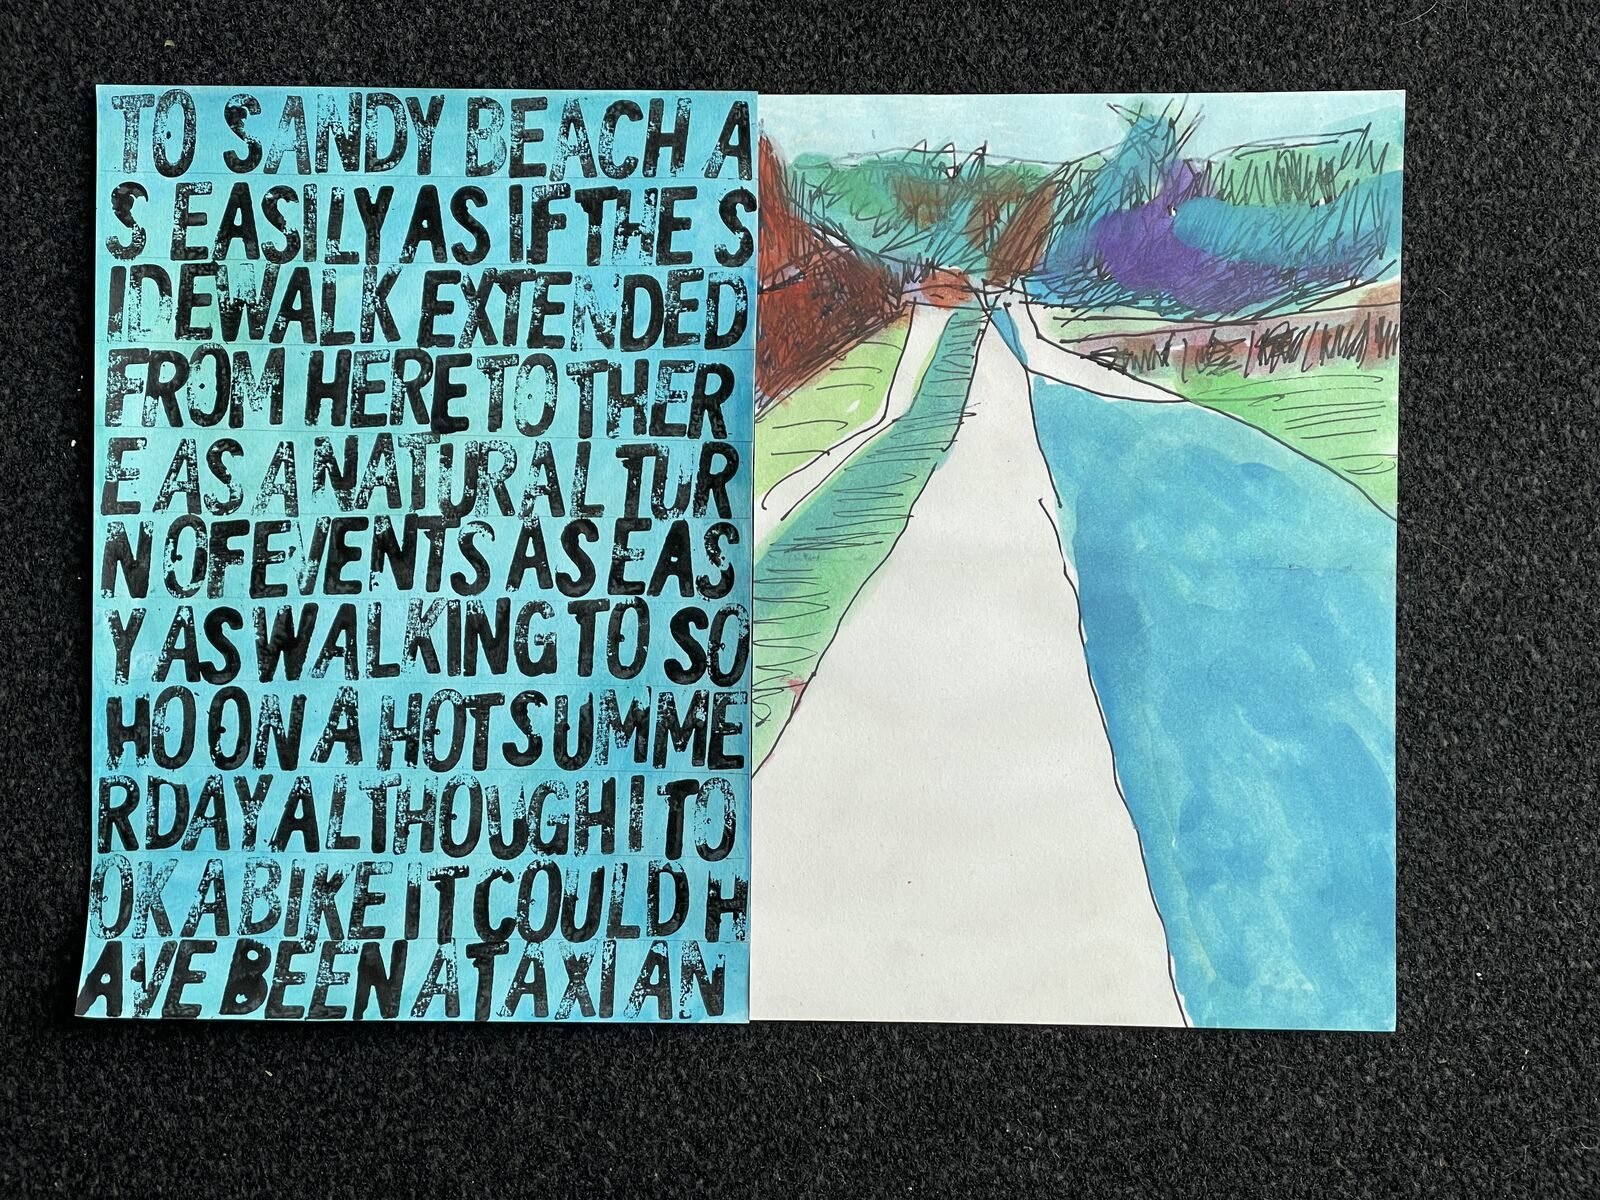 TO SANDY BEACH A
S EASILY AS IF THE S
IDEWALK EXTENDED
FROM HERE TO THER
E AS A NATURAL TUR
N OF EVENTS AS EAS
Y AS WALKING TO SO
HO ON A HOT SUMME
R DAY ALTHOUGH I TO
OK A BIKE IT COULD H
AVE BEEN A TAXI AN